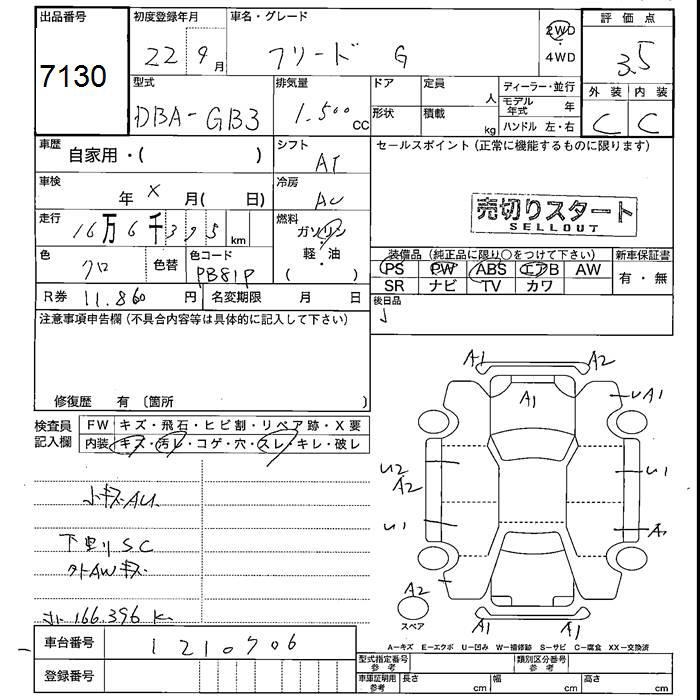 出品番号
7130
初度登録年月
22 9月
車名・グレード
フリード G
2WD
・
4WD
評価点
3.5
外装 内装
C C
型式
DBA-GB3
排気量
1.500 cc
ドア
定員
人
形状
積載
kg
ディーラー・並行
モデル年式 年
ハンドル 左・右
車歴
自家用・( )
シフト
AT
車検
年 X 月( 日)
冷房
AC
走行
16万6千395 km
燃料
ガソリン
軽・油
( )
色
クロ
色替
色コード
PB81P
R券 11.860 円
名変期限 月 日
セールスポイント (正常に機能するものに限ります)
売切りスタート
SELLOUT
装備品 (純正品に限り○をつけて下さい)
新車保証書
PS PW ABS エアB AW
SR ナビ TV カワ
有・無
後日品
注意事項申告欄 (不具合内容等は具体的に記入して下さい)
修復歴 有 〔箇所
検査員記入欄
FW キズ・飛石・ヒビ割・リペア跡・X要
内装 キズ・汚レ・コゲ・穴・スレ・キレ・破レ
小キズAU
下廻りSC
外AWキズ
166.396 K
A1 A2
A1
UA1
U2
A2
U1
U1
A1
A2
A1 A1
スペア
A-キズ E-エクボ U-凹み W-補修跡 S-サビ C-腐食 XX-交換済
車台番号
1210706
登録番号
型式指定番号
参考
類別区分番号
参考
車庫証明用
参考
長さ cm
幅 cm
高さ cm